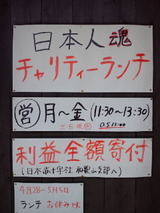 日本人魂
チャリティーランチ
営 月〜金 (11:30〜13:30)
利益全額寄付
(日本赤十字社 和歌山支部へ)
4月28〜5月5日
ランチ お休み